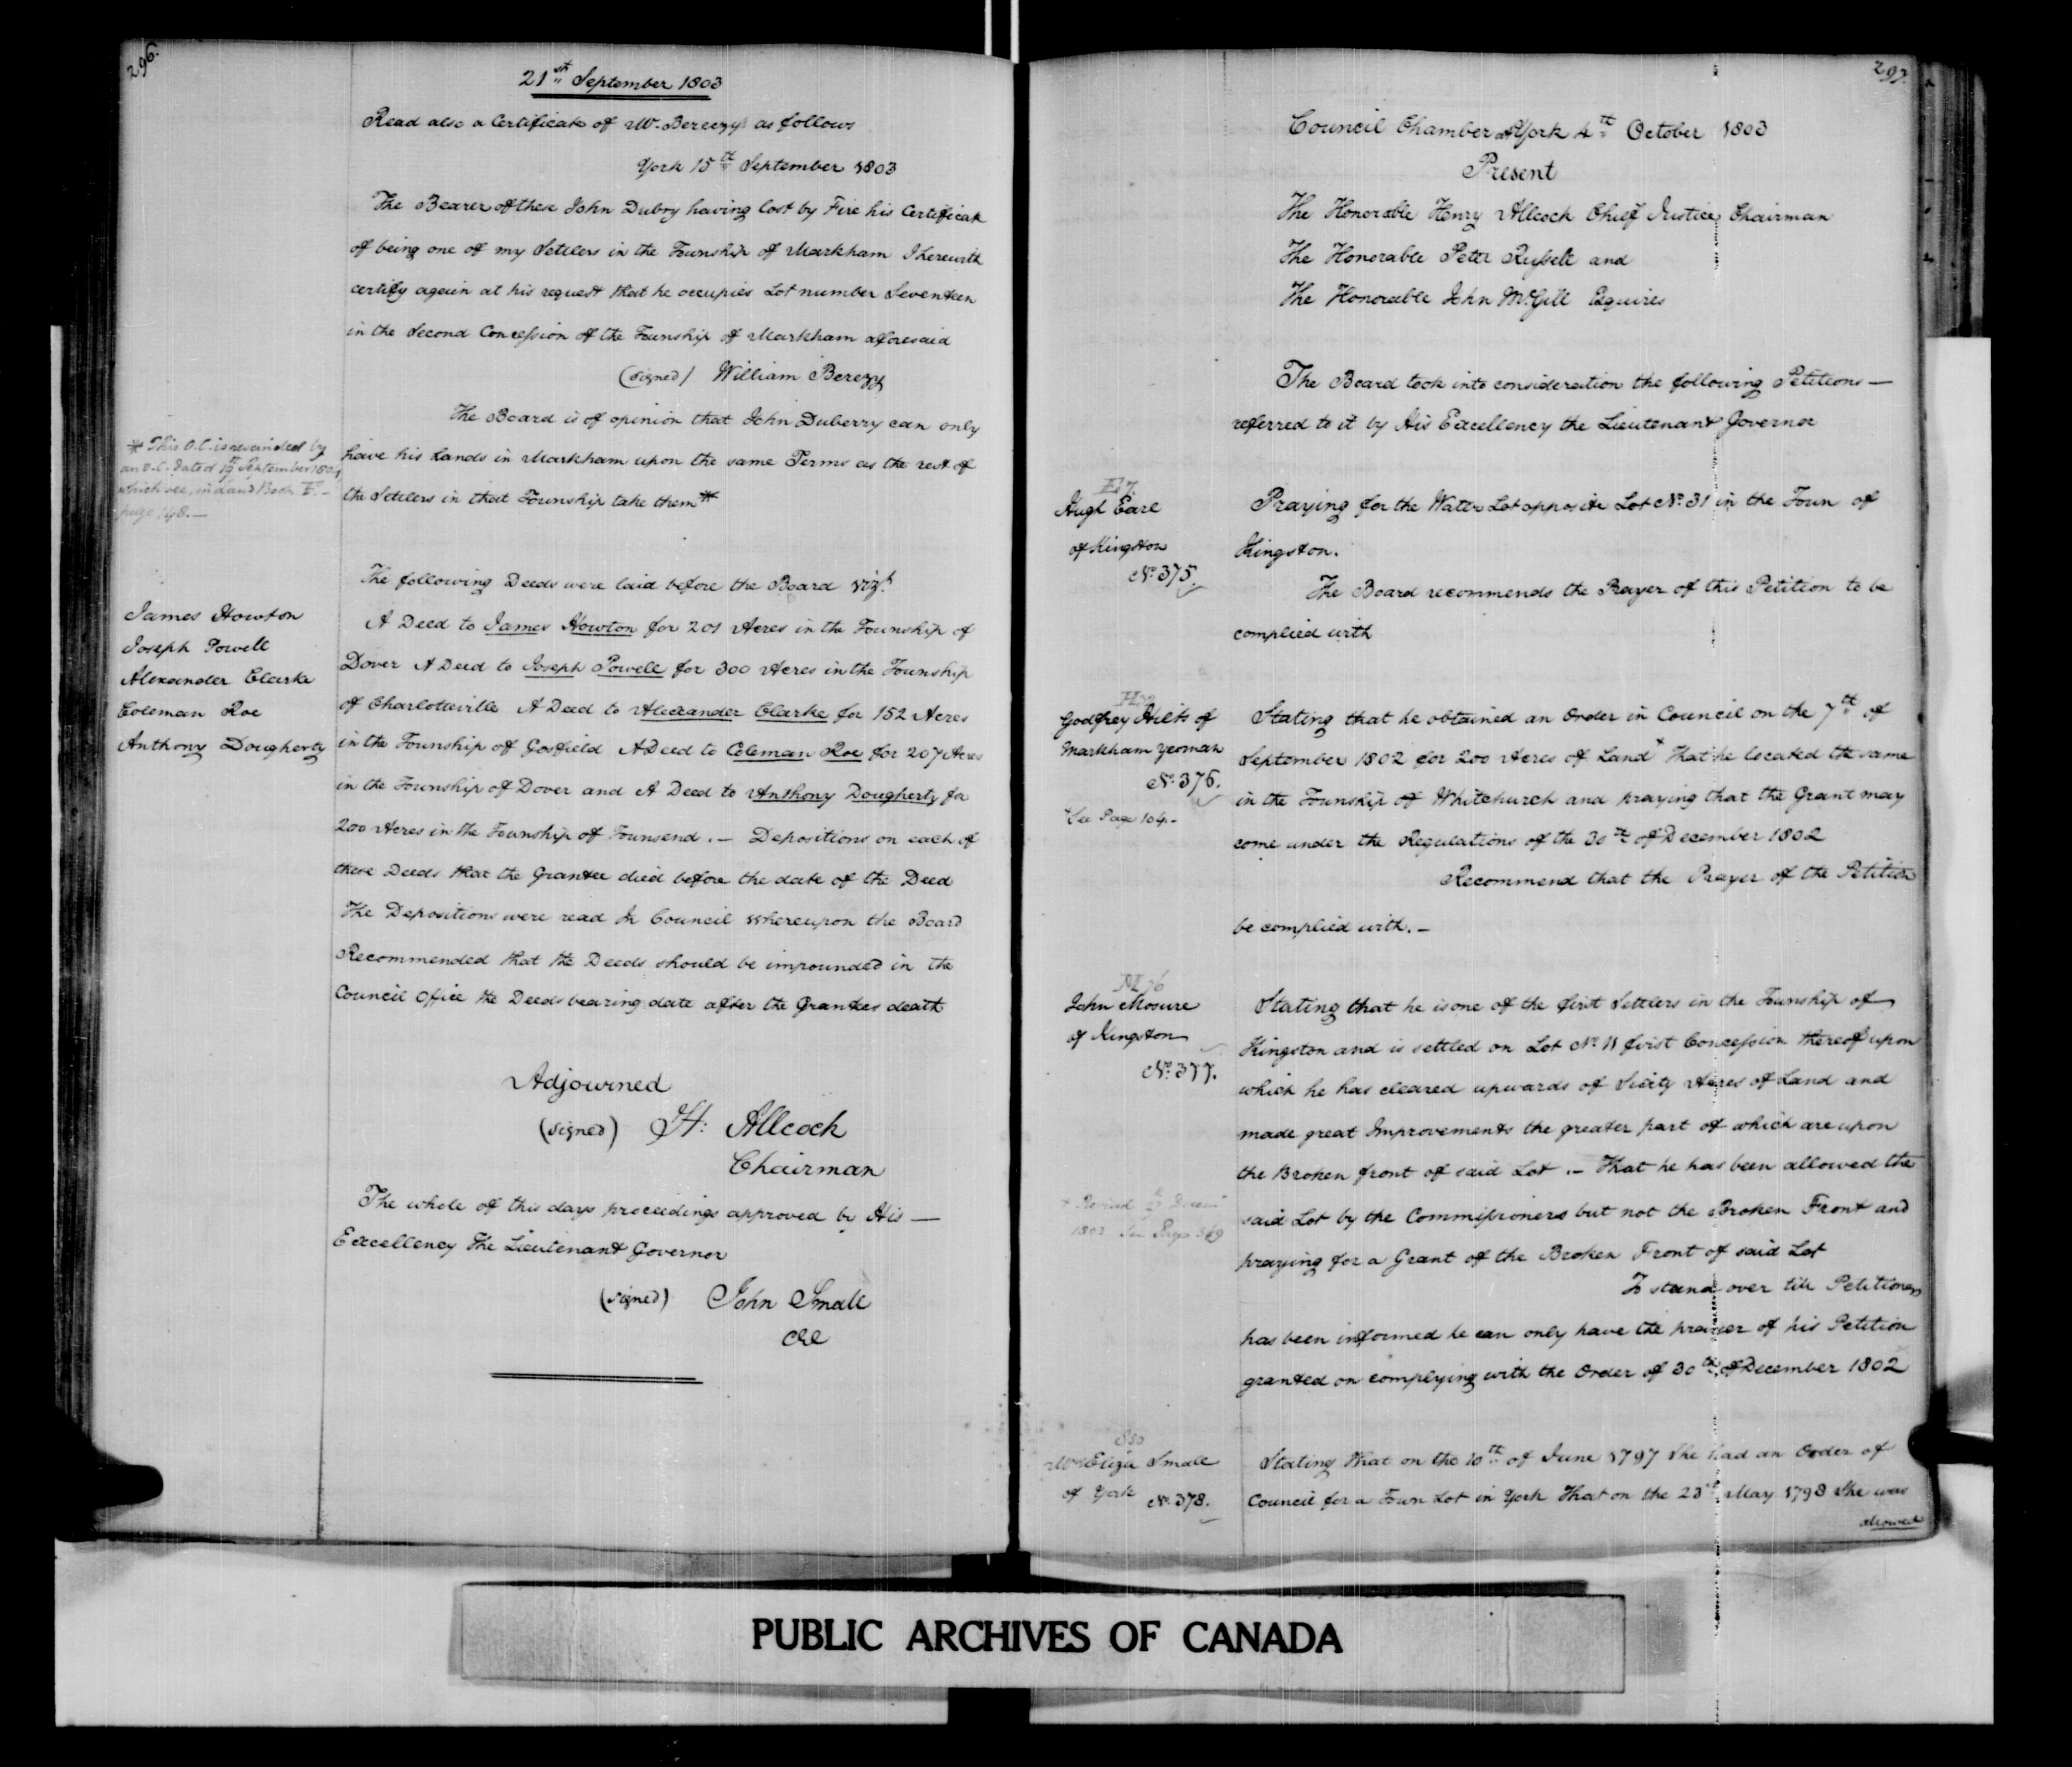 296.
21st September 1803
Read also a Certificate of Mr. Berczy's as follows
York 15th September 1803
The Bearer of these John Dubry having lost by Fire his Certificate
of being one of my Settlers in the Township of Markham I herewith
certify again at his request that he occupies Lot number Seventeen
in the Second Concession of the Township of Markham aforesaid
(signed) William Berczy
The Board is of opinion that John Duberry can only
have his Lands in Markham upon the same Terms as the rest of
the Settlers in that Township take them*
* This O.C. is rescinded by
an O.C. dated 19th September 1804
which see, in Land Book F. -
page 148. -
The following Deeds were laid before the Board Vizt
James Howton
Joseph Powell
Alexander Clarke
Coleman Roe
Anthony Dougherty
A Deed to James Howton for 201 Acres in the Township of
Dover A Deed to Joseph Powell for 300 Acres in the Township
of Charlotteville A Deed to Alexander Clarke for 152 Acres
in the Township of Gosfield A Deed to Coleman Roe for 207 Acres
in the Township of Dover and A Deed to Anthony Dougherty for
200 Acres in the Township of Townsend. - Depositions on each of
these Deeds that the Grantee died before the date of the Deed
The Depositions were read In Council Whereupon the Board
Recommended that the Deeds should be impounded in the
Council Office the Deeds bearing date after the Grantees death
Adjourned
(signed) H: Allcock
Chairman
The whole of this days proceedings approved by His —
Excellency The Lieutenant Governor
(signed) John Small
CEC
297.
Council Chamber at York 4th October 1803
Present
The Honorable Henry Allcock Chief Justice, Chairman
The Honorable Peter Russell and
The Honorable John McGill Esquires
The Board took into consideration the following Petitions —
referred to it by His Excellency the Lieutenant Governor
E 7
Hugh Earl
of Kingston
No. 375.
Praying for the Water Lot opposite Lot No. 31 in the Town of
Kingston.
The Board recommends the Prayer of this Petition to be
complied with
Godfrey Hilts of
Markham Yeoman
No. 376.
+ See Page 104. -
Stating that he obtained an Order in Council on the 7th of
September 1802 for 200 Acres of Land + That he located the same
in the Township of Whitchurch and praying that the Grant may
come under the Regulations of the 30th of December 1802
Recommend that the Prayer of the Petition
be complied with. -
M 76
John Mosure
of Kingston
No. 377.
Stating that he is one of the first Settlers in the Township of
Kingston and is settled on Lot No. 11 first Concession thereof upon
which he has cleared upwards of Sixty Acres of Land and
made great Improvements the greater part of which are upon
the Broken front of said Lot. - That he has been allowed the
said Lot by the Commissioners but not the Broken Front and
praying for a Grant of the Broken Front of said Lot
See Page 369
To stand over till Petitioner
has been informed he can only have the prayer of his Petition
granted on complying with the Order of 30th of December 1802
S 50
Mrs Eliza Small
of York No. 378.
Stating that on the 10th of June 1797 She had an Order of
Council for a Town Lot in York That on the 23d May 1798 She was
allowed
PUBLIC ARCHIVES OF CANADA